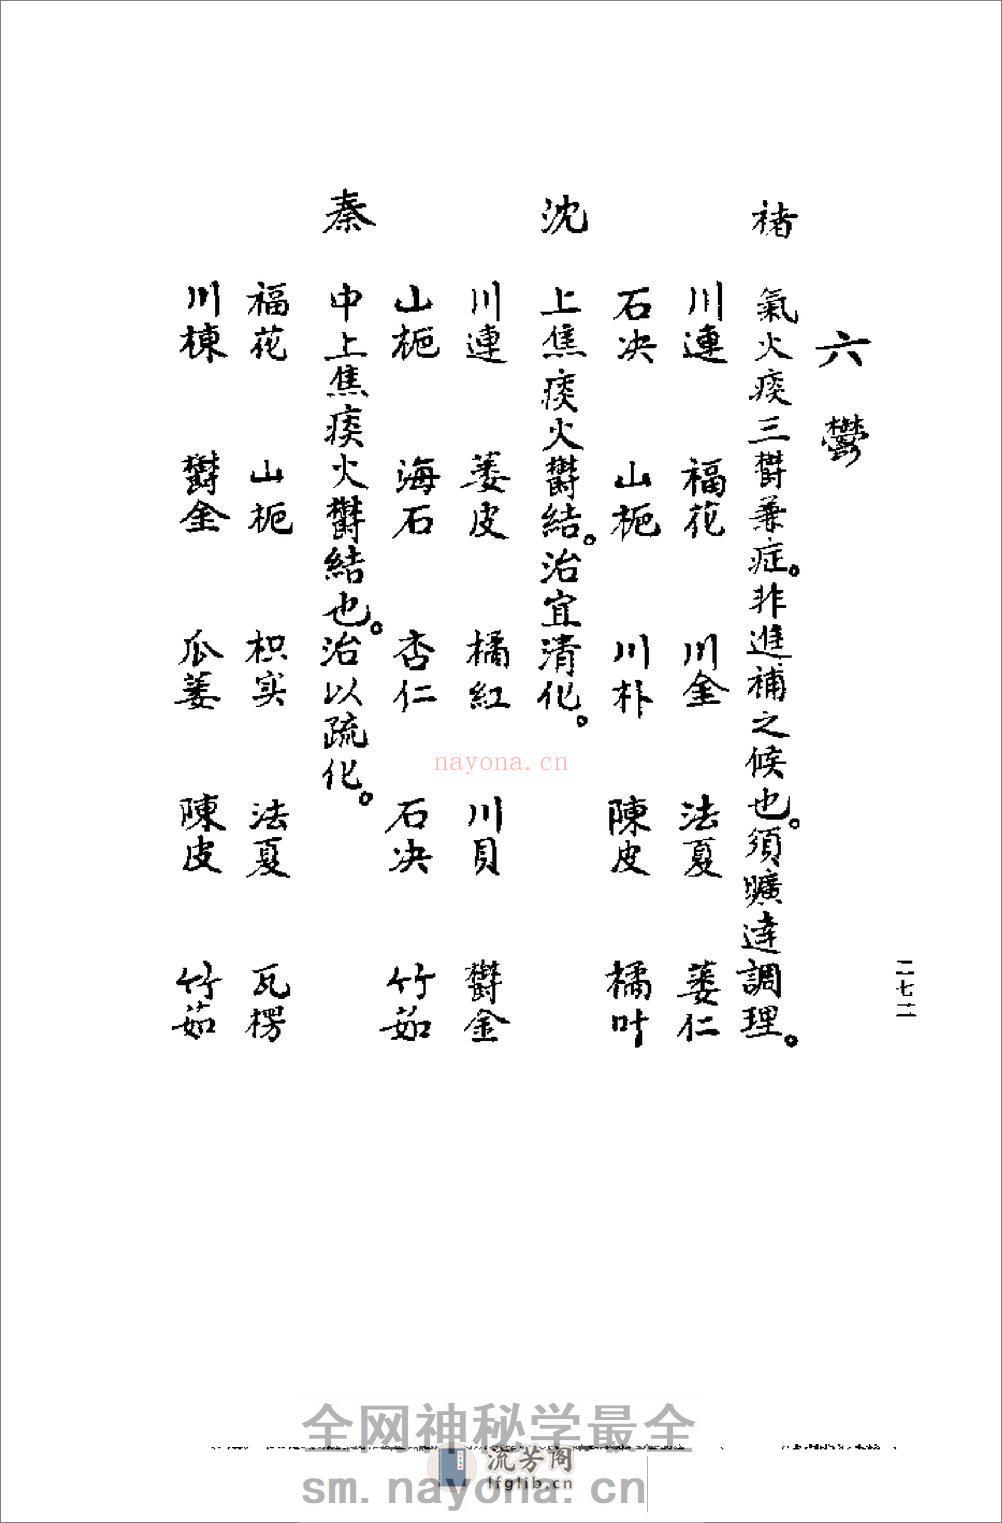 六鬱
褚 氣火痰三鬱兼症。非進補之候也。須曠達調理。
川連 福花 川金 法夏 蒌仁
石决 山栀 川朴 陳皮 橘叶
沈 上焦痰火鬱結。治宜清化。
川連 蒌皮 橘紅 川貝 鬱金
山栀 海石 杏仁 石决 竹茹
秦 中上焦痰火鬱結也。治以疏化。
福花 山栀 枳实 法夏 瓦楞
川楝 鬱金 瓜蒌 陳皮 竹茹
二七二
nayona.cn
全网神秘学最全
流芳阁
lfglib.cn
sm.nayona.cn